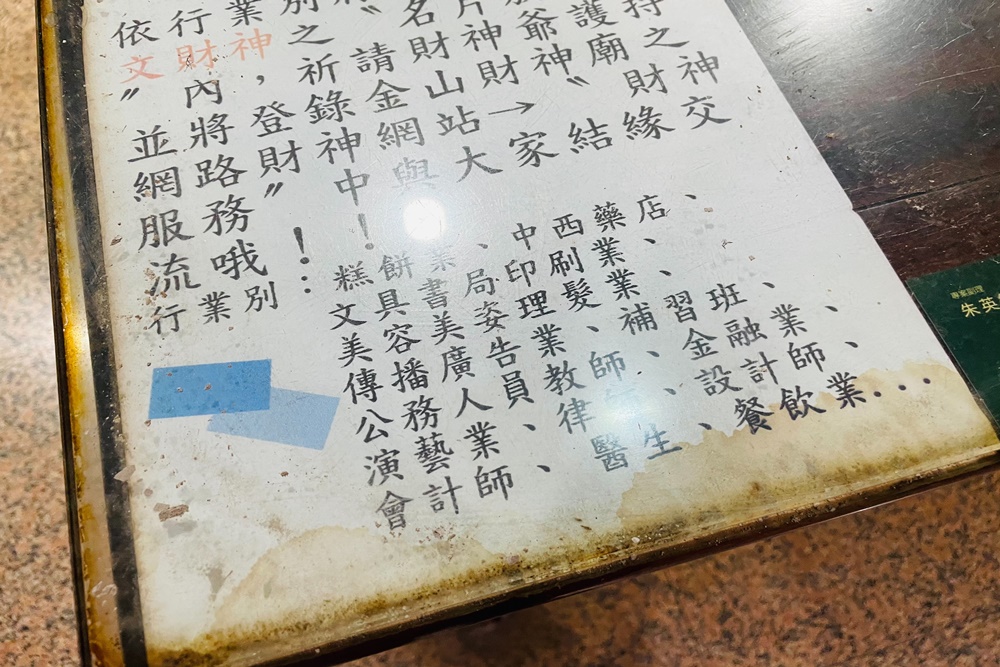 依行業別
文財神之〝名片
〃內，祈請財神爺護持
並將登錄金山財神廟之
網路財神網站→〝財神
服務〃中與大家結緣交
流哦！！
行業別：糕餅業、中西藥店、
文具書局、印刷業、
美容美姿理髮業、
傳播廣告業、補習班、
公務人員、教師、金融業、
演藝業、律師、設計師、
會計師、醫生、餐飲業...
朱英